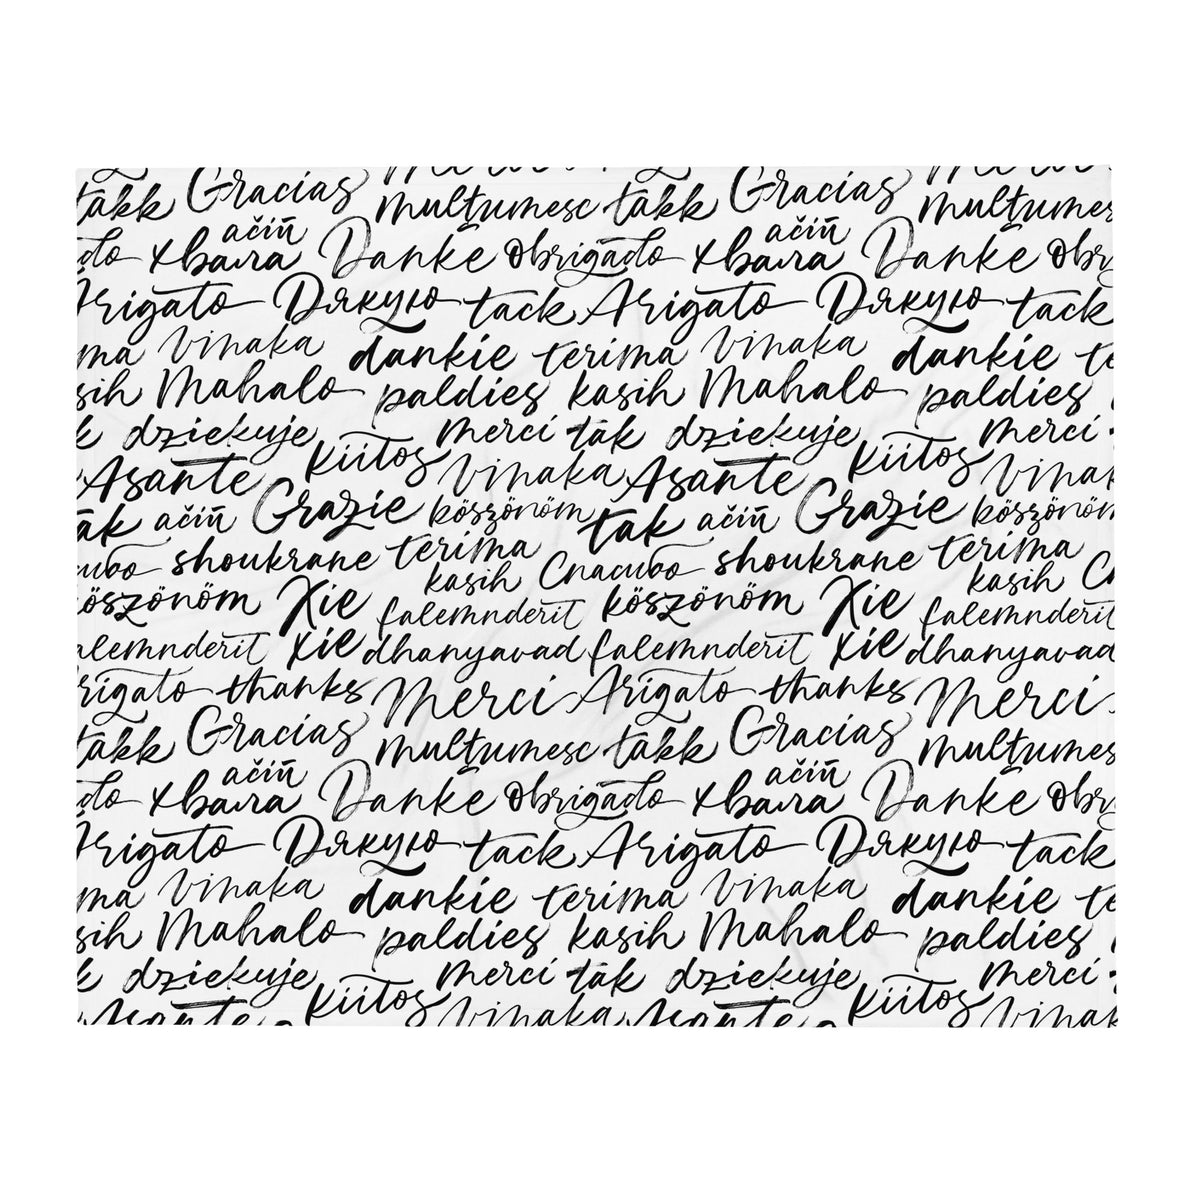 takk Gracias multumesc takk Gracias multumes
ačiū ačiū
do хвала Danke obrigado хвала Danke obri
Arigato Дякую tack Arigato Дякую tack
ma vinaka dankie terima vinaka dankie te
sih Mahalo paldies kasih Mahalo paldies
k dziekuje kiitos merci tak dziekuje kiitos merci
Asante vinaka Asante vinak
tak ačiū Grazie köszönöm tak ačiū Grazie köszönöm
сибо shoukrane terima kasih Спасибо shoukrane terima kasih С
köszönöm Xie falemnderit köszönöm Xie falemnderit
alemnderit xie dhanyavad falemnderit xie dhanyavad
rigato thanks Merci Arigato thanks Merci
takk Gracias multumesc takk Gracias multumes
ačiū ačiū
do хвала Danke obrigado хвала Danke obri
Arigato Дякую tack Arigato Дякую tack
ma vinaka dankie terima vinaka dankie te
sih Mahalo paldies kasih Mahalo paldies
k dziekuje kiitos merci tak dziekuje kiitos merci
Asante vinaka Asante vinak